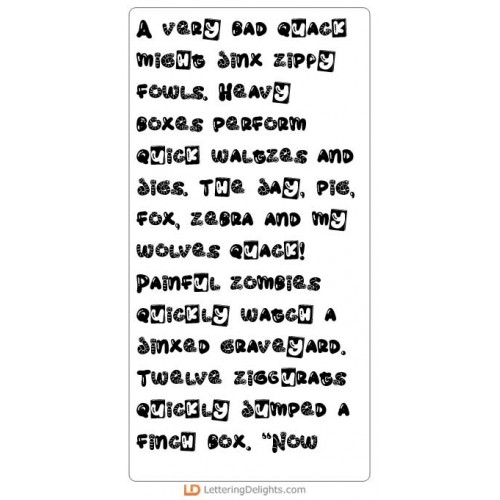 A very bad quack
might jinx zippy
fowls. Heavy
boxes perform
quick waltzes and
jigs. The jay, pig,
fox, zebra and my
wolves quack!
Painful zombies
quickly watch a
jinxed graveyard.
Twelve ziggurats
quickly jumped a
finch box. "Now
LD LetteringDelights.com